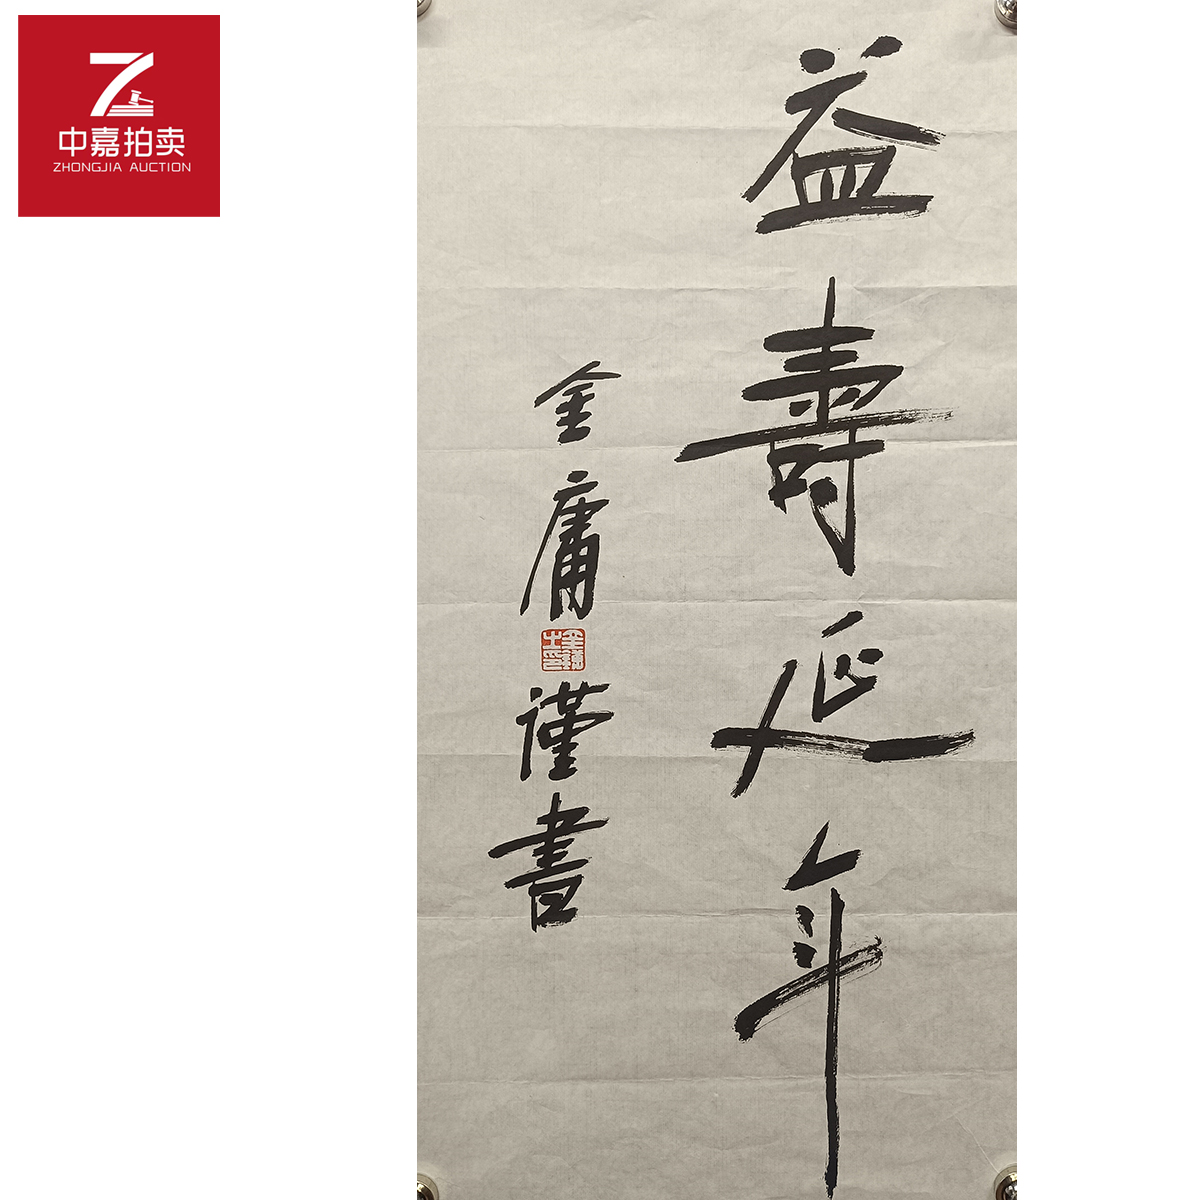 中嘉拍卖
ZHONGJIA AUCTION
益壽延年
金庸謹書